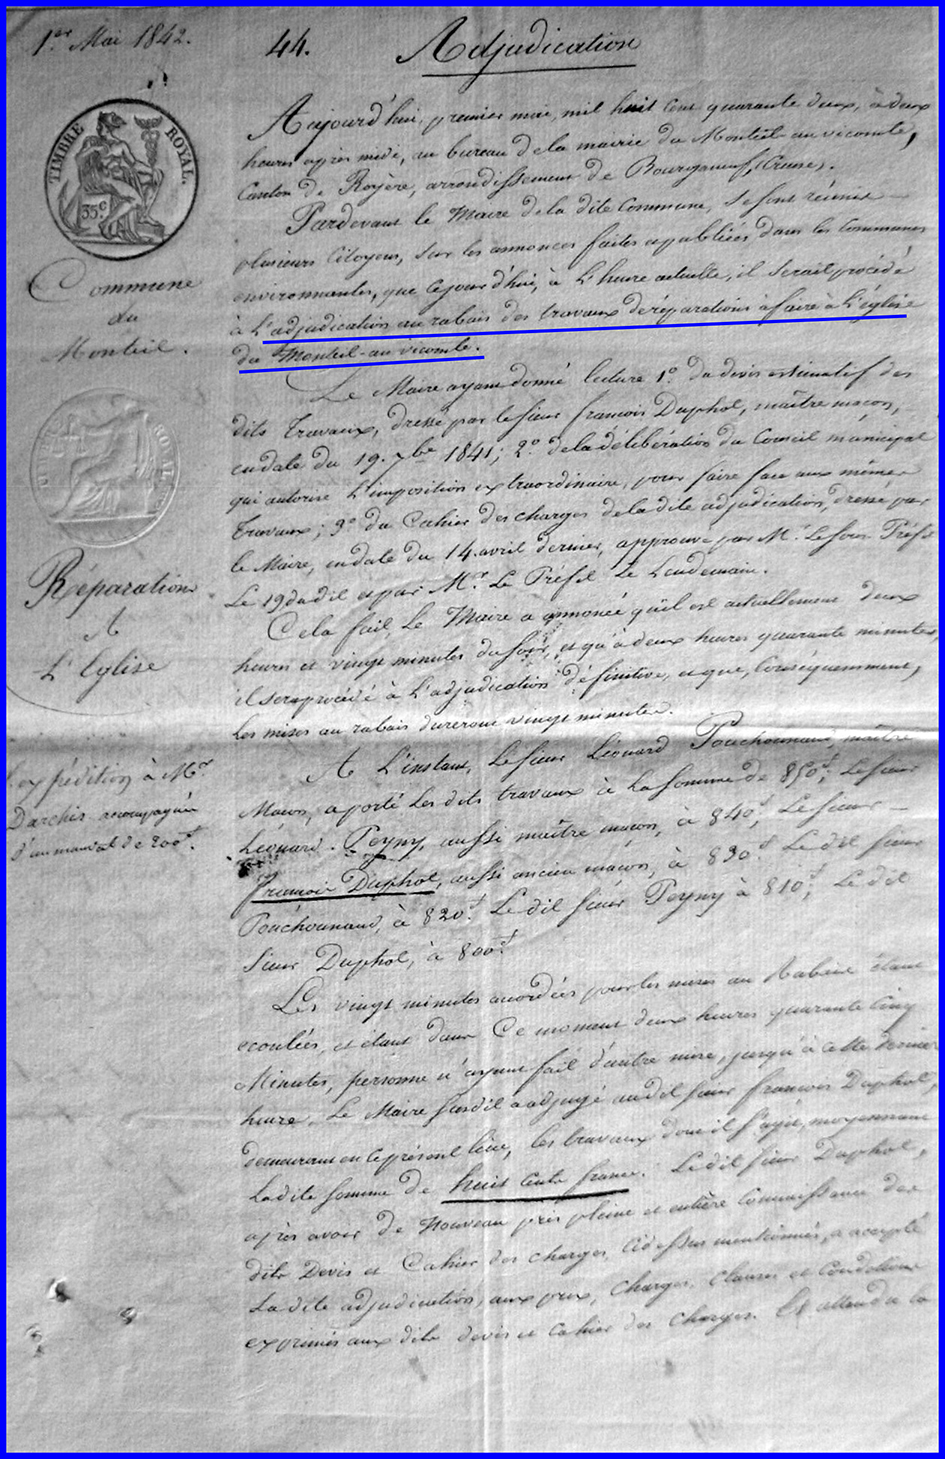 1er Mai 1842.
44. Adjudication
TIMBRE ROYAL.
35 c
Commune
du
Monteil.
Réparations
A
L'Eglise
expédition à Mr
Darchis accompagnée
d'un mandat de 200f.
Aujourd'hui, premier mai, mil huit cent quarante deux, à deux
heures après midi, au bureau de la mairie du Monteil-au vicomte,
Canton de Royère, arrondissement de Bourganeuf, (Creuse).
Pardevant le Maire de la dite Commune, se sont réunis
plusieurs Citoyens, sur les annonces faites et publiées dans les Communes
environnantes, que cejourd'hui, à L'heure actuelle, il serait procédé
à L'adjudication au rabais des travaux de réparations à faire à L'église
du Monteil-au vicomte.
Le Maire ayant donné lecture 1° du devis estimatif des
dits travaux, dressé par le sieur francois Duphot, maître maçon,
en date du 19. 7bre 1841; 2° de la délibération du Conseil municipal
qui autorise L'imposition extraordinaire, pour faire face aux mêmes
travaux; 3° du Cahier des charges de la dite adjudication, dressé par
le Maire, en date du 14 avril dernier, approuvé par Mr. Le Sous Préfet
Le 19 du dit et par Mr. Le Préfet Le Lendemain.
Cela fait, Le Maire a annoncé qu'il est actuellement deux
heures et vingt minutes du soir, et qu'à deux heures quarante minutes,
il sera procédé à L'adjudication définitive, et que, Conséquemment,
Les mises au rabais dureront vingt minutes.
A L'instant, Le sieur Léonard Pouchounaud, maître
Macon, a porté Les dits travaux à La somme de 850f; Le sieur
Léonard Peyny, aussi maître maçon, à 840f, Le sieur
francois Duphot, aussi ancien maçon, à 830f. Le dit sieur
Pouchounaud, à 820f. Le dit sieur Peyny à 810f; Le dit
Sieur Duphot, à 800f.
Les vingt minutes accordées pour les mises au Rabais étant
ecoulées, et étant dans Ce moment deux heures quarante Cinq
Minutes, personne n'ayant fait d'autre mise, jusqu'à cette derniere
heure, Le Maire susdit a adjugé au dit sieur francois Duphot,
demeurant en ce présent lieu, les travaux dont il s'agit, moyennant
La dite somme de huit Cents francs. Le dit sieur Duphot,
après avoir de Nouveau pris pleine et entière Connaissance des
dits Devis et Cahier des charges, cidessus mentionnés, a accepté
La dite adjudication, aux prix, Charges, Clauses et Conditions
exprimés aux dits devis et Cahier des Charges. Et attendu la